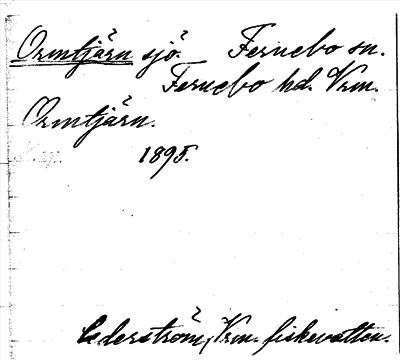 Ormtjärn sjö. Fernebo sn.
Fernebo hd. Vrm.
Ormtjärn.
1895.
Cederström, Vrm. fiskevatten.